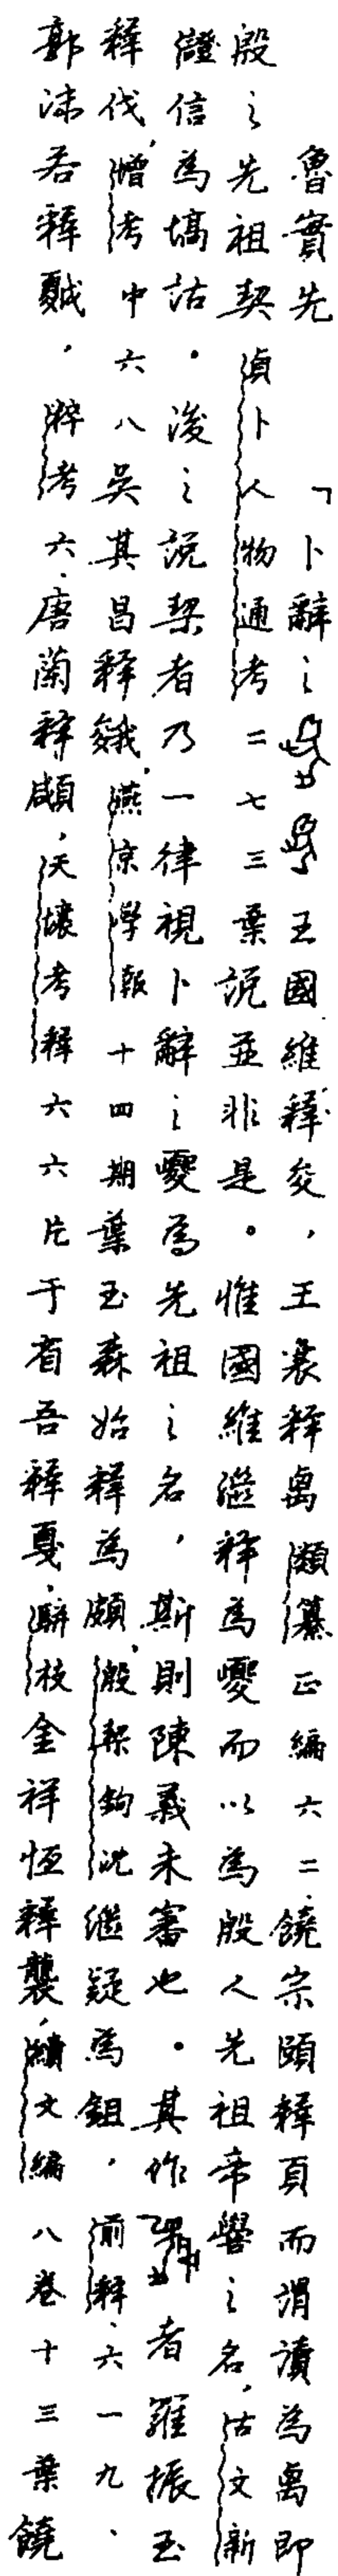 魯實先「卜辭之 王國維釋夋,王襄釋禼類纂正編六二.饒宗頤釋頁而謂讀為禼即
殷之先祖契貞卜人物通考二七三葉說並非是。惟國維繼釋為夒而以為殷人先祖帝嚳之名,古文新
證信為塙詁。後之說契者乃一律視卜辭之夒為先祖之名,斯則陳義未審也。其作 者羅振玉
釋伐增考中六八吳其昌釋 燕京學報十四期葉玉森始釋為頗殷契鉤沈繼疑為鉏,前釋.六一九、
郭沫若釋 ,粹考六.唐蘭釋 ,天壤考釋六六片于省吾釋戛.駢枝金祥恆釋襲,續文編八卷十三葉饒